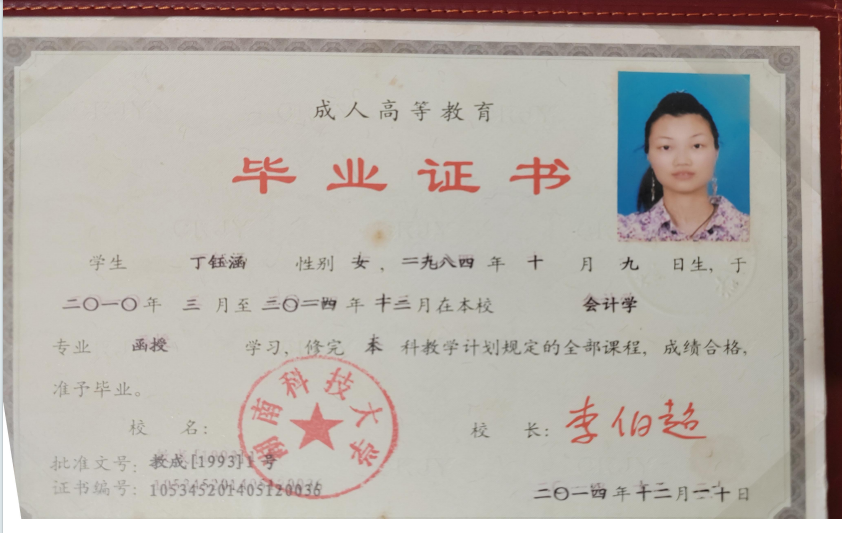 成人高等教育
毕业证书
学生 丁钰涵 性别 女、一九八四 年 十 月 九 日生,于
二〇一〇年 三 月至 二〇一四 年 十二月在本校 会计学
专业 函授 学习,修完 本 科教学计划规定的全部课程,成绩合格,
准予毕业。
校 名: 湖南科技大学 校 长: 李伯超
批准文号: 教成[1993]1号
证书编号: 105345201405120036
二〇一四年十二月二十日